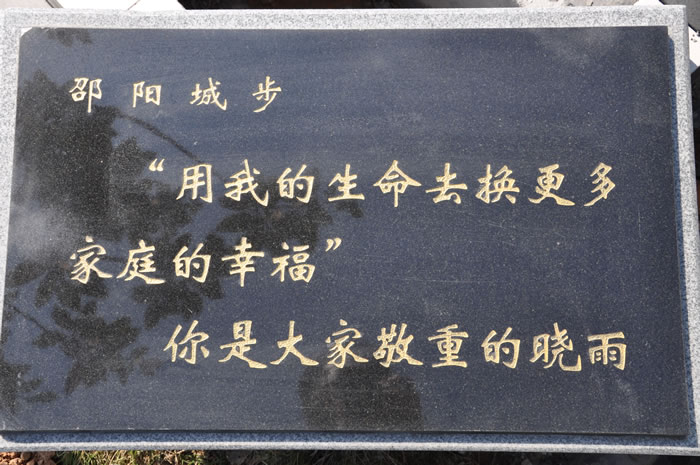 邵阳城步
“用我的生命去换更多
家庭的幸福”
你是大家敬重的晓雨